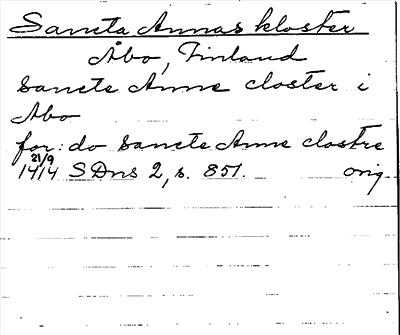 Sancta Annas kloster
Åbo, Finland
Sancte Anne closter i
Åbo
for: do Sancte Anne clostre
21/9
1414 SDns 2, s. 851. orig